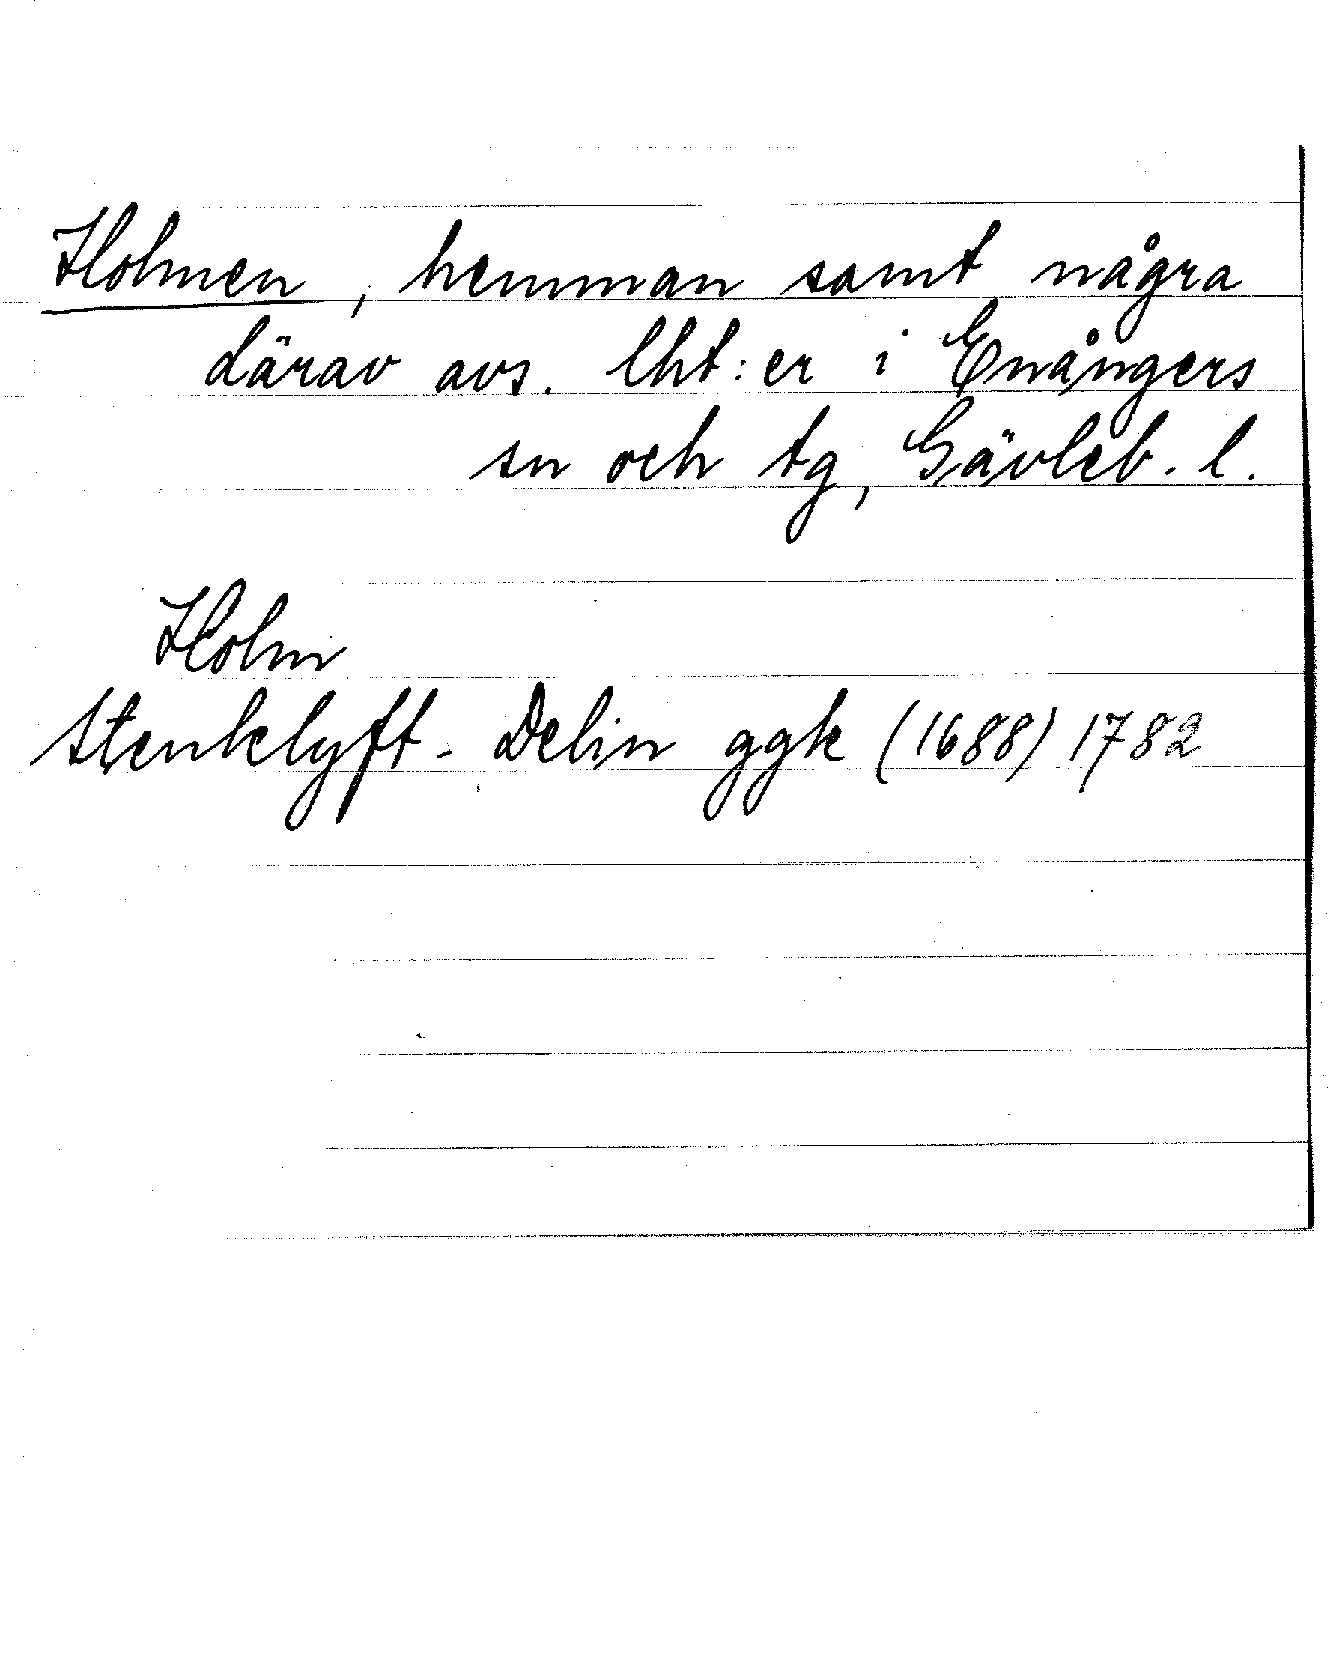 Holmen, hemman samt några
därav avs. lht:er i Enångers
sn och tg, Gävleb. l.
Holm
Stenklyft- Delin ggk (1688) 1782